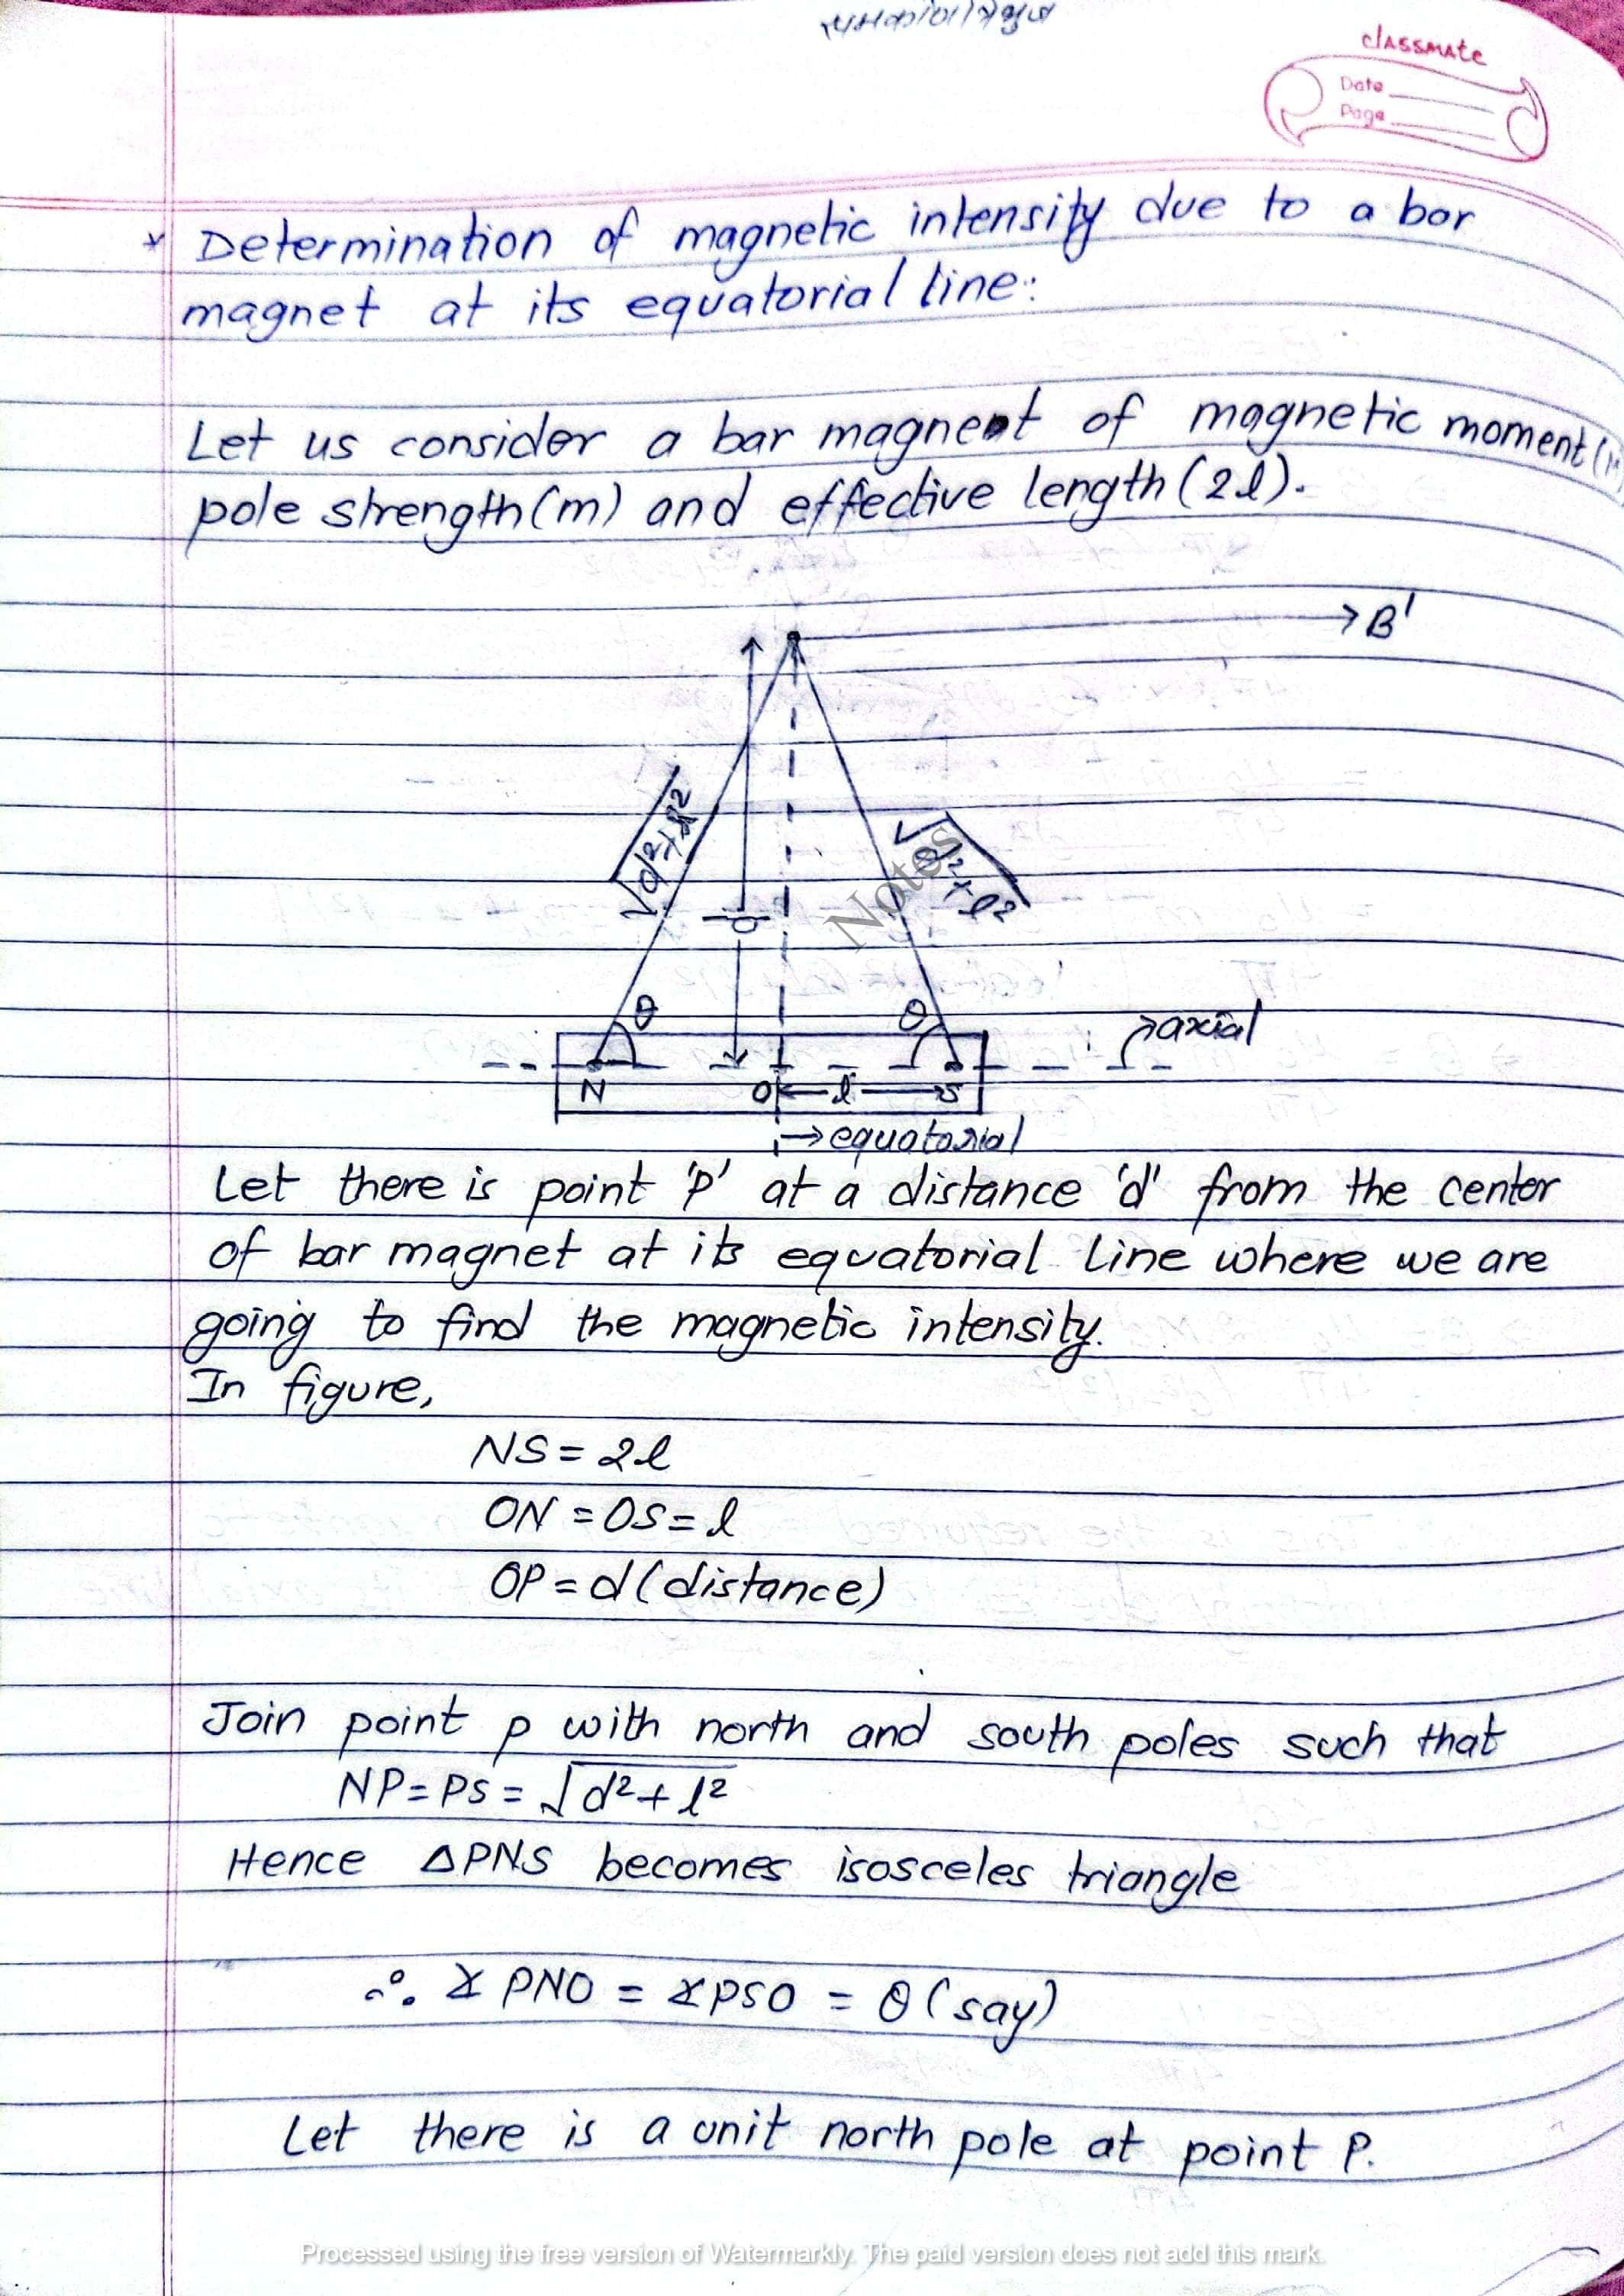 classmate
Date
Page
* Determination of magnetic intensity due to a bar
magnet at its equatorial line:
Let us consider a bar magnent of magnetic moment (M
pole strength(m) and effective length (2l).
B'
√d²+l²
√d²+l²
d
Notes
θ
θ
axial
N
O
l
S
equatorial
Let there is point 'p' at a distance 'd' from the center
of bar magnet at its equatorial line where we are
going to find the magnetic intensity.
In figure,
NS = 2l
ON = OS = l
OP = d (distance)
Join point p with north and south poles such that
NP = PS = √d²+l²
Hence ΔPNS becomes isosceles triangle
∴ ∡ PNO = ∡PSO = θ (say)
Let there is a unit north pole at point P.
Processed using the free version of Watermarkly. The paid version does not add this mark.